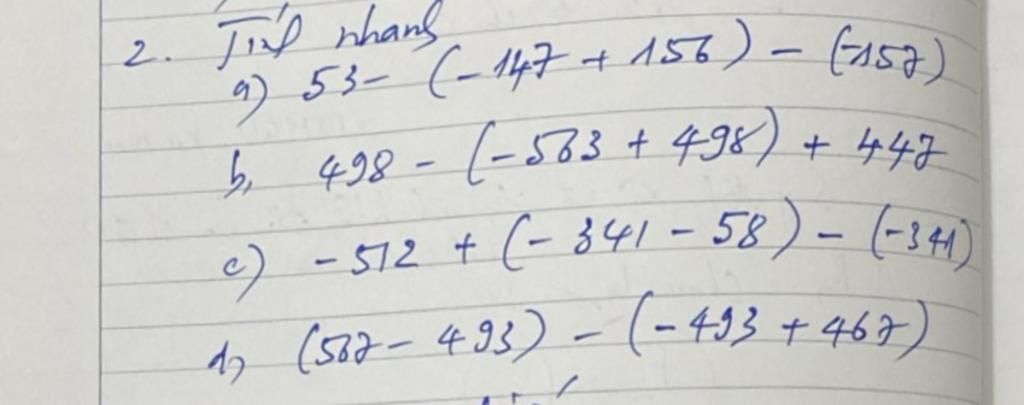 2. Tính nhanh
a) 53 - (-147 + 156) - (-157)
b, 498 - (-563 + 498) + 447
c) -512 + (-341 - 58) - (-341)
d, (567 - 493) - (-493 + 467)